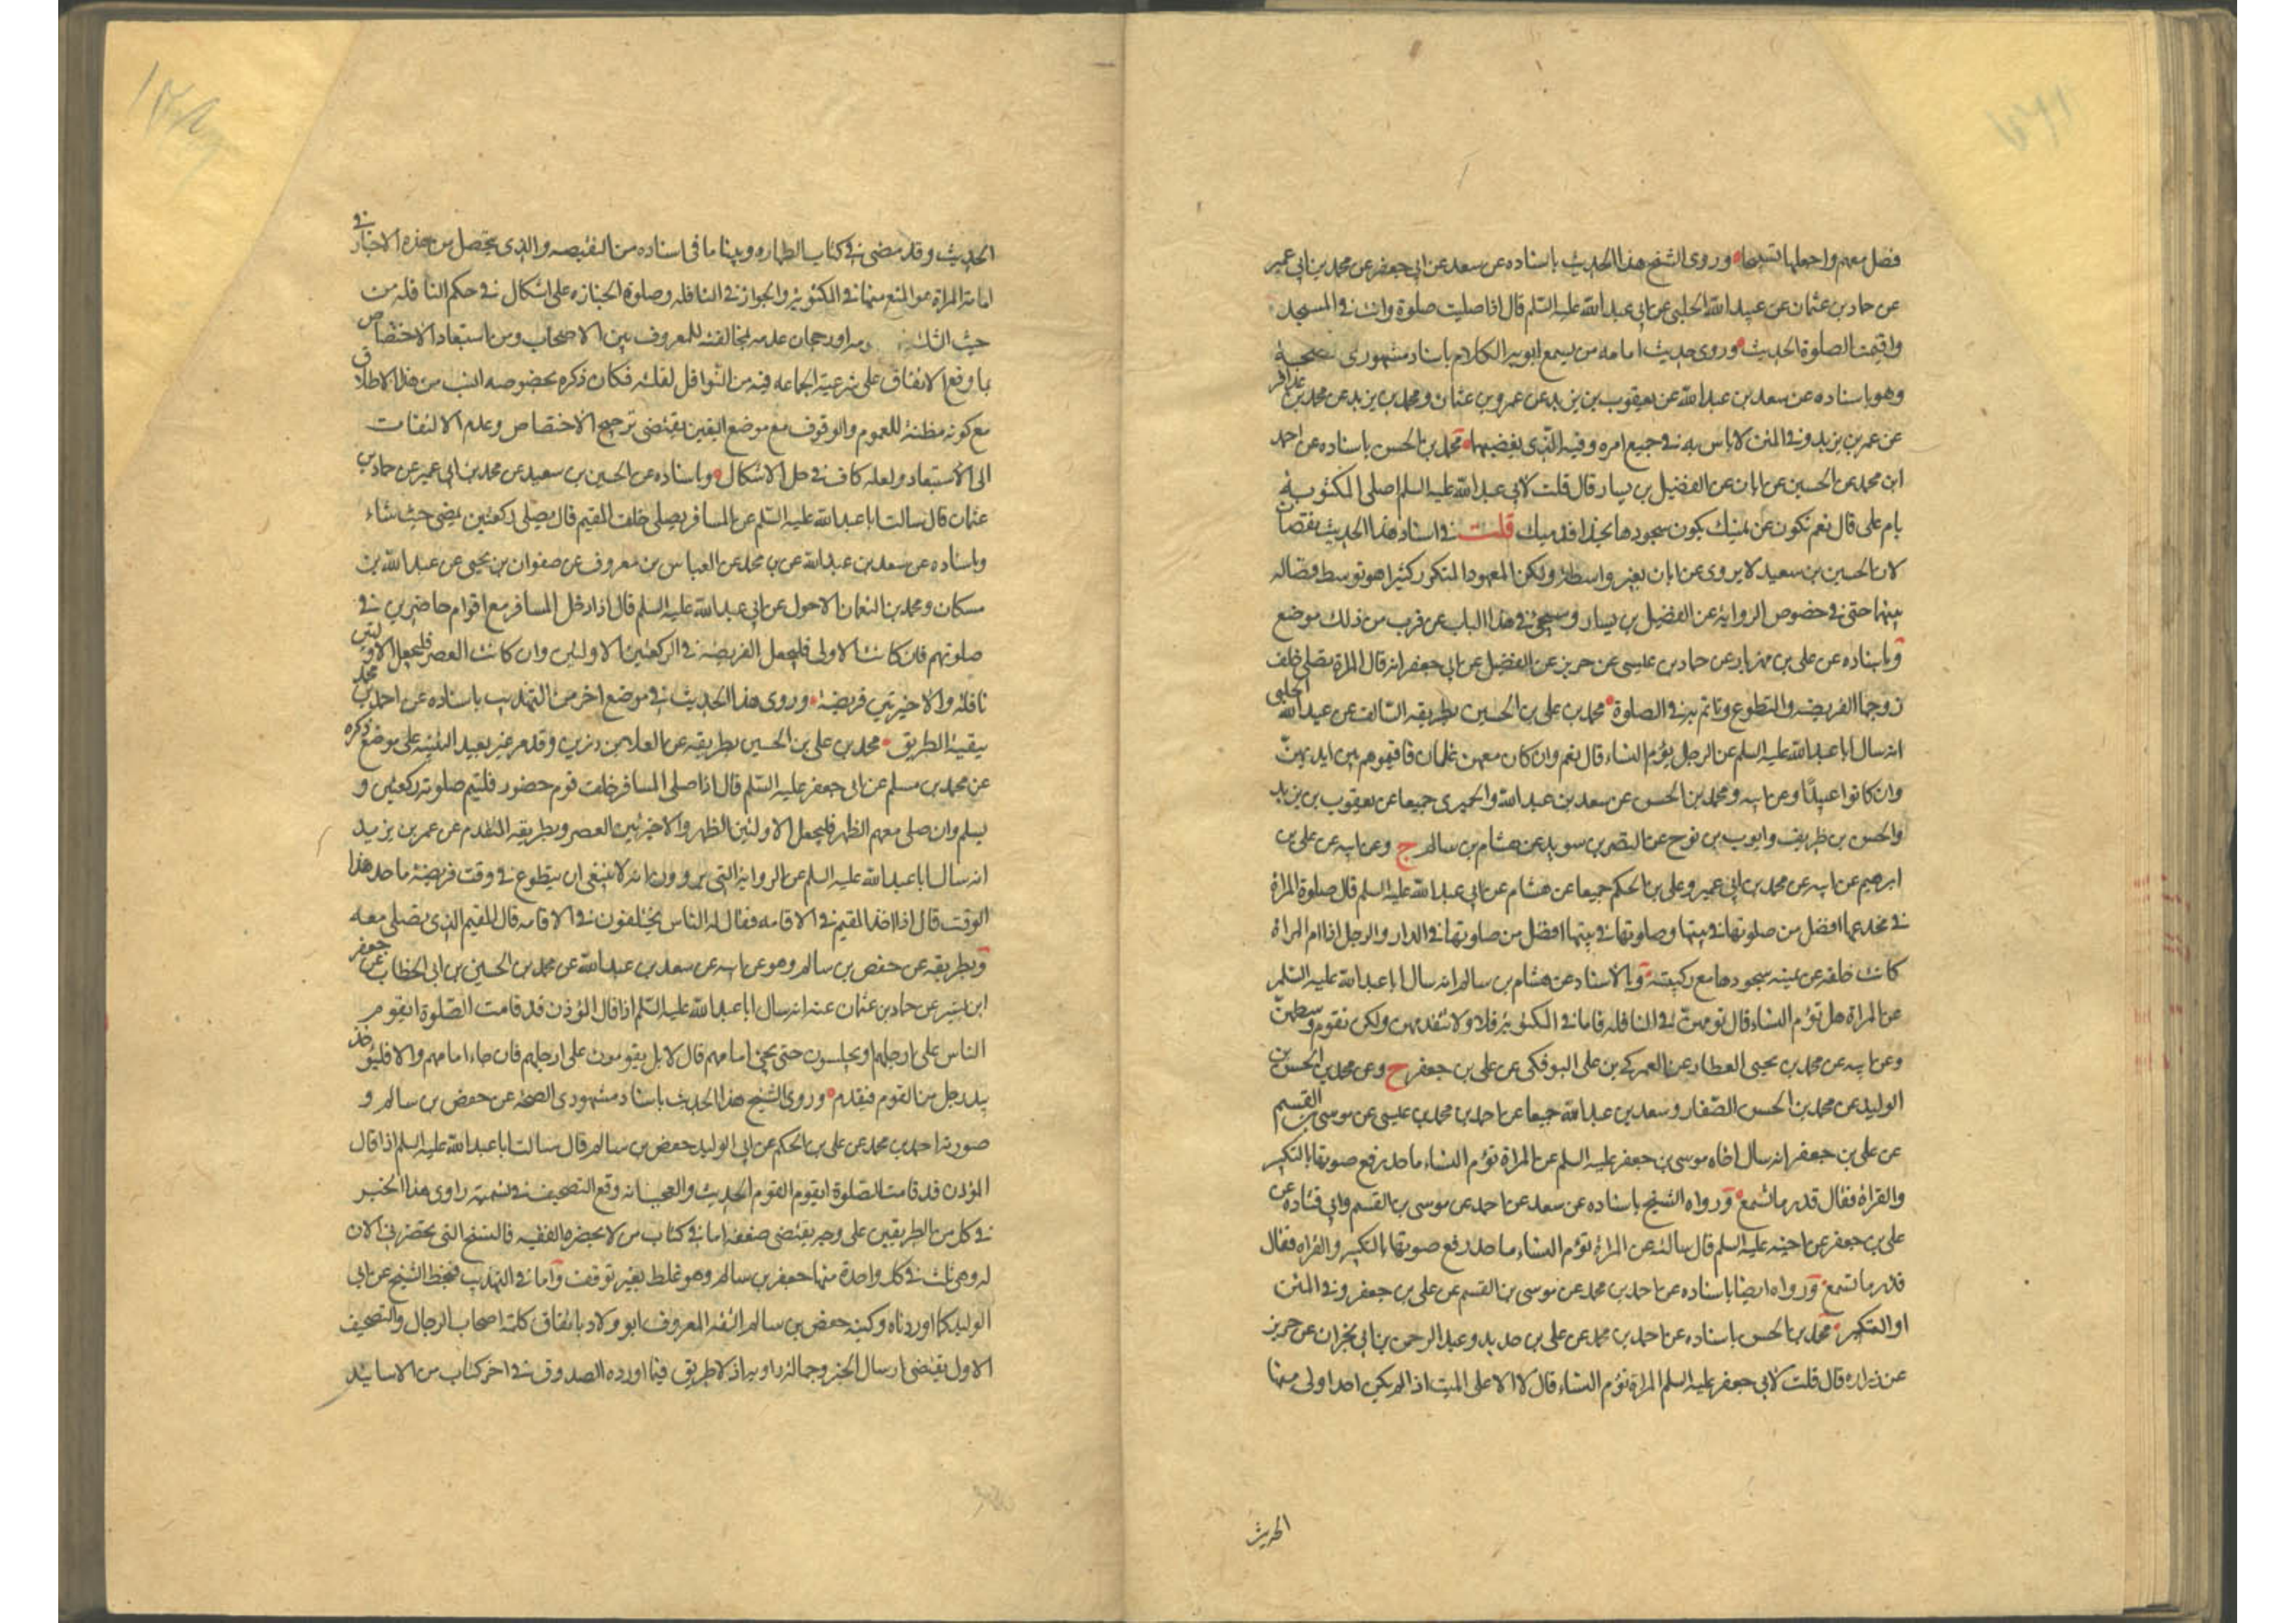 فصل معهم واجعلها تسبيحا وروى الشيخ هذا الحديث باسناده عن سعد عن ابى جعفر عن محمد بن ابى عمير
عن حماد بن عثمان عن عبيد الله الحلبى عن ابى عبد الله عليه السلم قال اذا صليت صلوة وانت فى المسجد
واقيمت الصلوة الحديث وروى حديث امامه من يسمع ابويه الكلام باسناد مشهورى الصحة
وهو باسناده عن سعد بن عبد الله عن يعقوب بن يزيد عن عمرو بن عثمان ومحمد بن يزيد عن محمد بن عذافر
عن عمر بن يزيد وفى المتن لا باس به فى جميع امره وفيه الذى يغضبهما محمد بن الحسن باسناده عن احمد
ابن محمد عن الحسين عن ابان عن الفضيل بن يسار قال قلت لابى عبد الله عليه السلم اصلى المكتوبة
بام على قال نعم تكون عن يمينك يكون سجودها بحذاء قدميك قلت فى اسناد هذا الحديث نقصان
لان الحسين بن سعيد لا يروى عن ابان بغير واسطة ولكن المعهود المتكرر كثيرا هو توسط فضاله
بينهما حتى فى خصوص الرواية عن الفضيل بن يسار وسيجئ فى هذا الباب عن قرب من ذلك موضع
وباسناده عن على بن مهزيار عن حماد بن عيسى عن حريز عن الفضيل عن ابى جعفر انه قال المراة تصلى خلف
زوجها الفريضه والتطوع وتاتم به فى الصلوة محمد بن على بن الحسين بطريقه السالف عن عبيد الله الحلبى
انه سال ابا عبد الله عليه السلم عن الرجل يؤم النساء قال نعم وان كان معهن غلمان فاقيموهم بين ايديهن
وان كانوا عبيدا وعن ابيه ومحمد بن الحسن عن سعد بن عبد الله والحميرى جميعا عن يعقوب بن يزيد
والحسن بن ظريف وايوب بن نوح عن النضر بن سويد عن هشام بن سالم ح وعن ابيه عن على بن
ابرهيم عن ابيه عن محمد بن ابى عمير وعلى بن الحكم جميعا عن هشام عن ابى عبد الله عليه السلم قال صلوة المراة
فى مخدعها افضل من صلوتها فى بيتها وصلوتها فى بيتها افضل من صلوتها فى الدار والرجل اذا ام المراة
كانت خلفه عن يمينه سجودها مع ركبتيه وبالاسناد عن هشام بن سالم انه سال ابا عبد الله عليه السلم
عن المراة هل تؤم النساء قال تؤمهن فى النافله فاما فى المكتوبة فلا ولا تتقدمهن ولكن تقوم وسطهن
وعن ابيه عن محمد بن يحيى العطار عن العمركى بن على البوفكى عن على بن جعفر ح وعن محمد بن الحسن بن
الوليد عن محمد بن الحسن الصفار وسعد بن عبد الله جميعا عن احمد بن محمد بن عيسى عن موسى بن القسم
عن على بن جعفر انه سال اخاه موسى بن جعفر عليه السلم عن المراة تؤم النساء ما حد رفع صوتها بالتكبير
والقراة فقال قدر ما تسمع ورواه الشيخ باسناده عن سعد عن احمد عن موسى بن القسم وابى قتادة عن
على بن جعفر عن اخيه عليه السلم قال سالته عن المراة تؤم النساء ما حد رفع صوتها بالتكبير والقراة فقال
قدر ما تسمع ورواه ايضا باسناده عن احمد بن محمد عن موسى بن القسم عن على بن جعفر وفى المتن
او التكبير محمد بن الحسن باسناده عن احمد بن محمد عن على بن حديد وعبد الرحمن بن ابى نجران عن حريز
عن زراره قال قلت لابى جعفر عليه السلم المراة تؤم النساء قال لا الا على الميت اذا لم يكن احد اولى منها
الحديث
الحديث وقد مضى فى كتاب الطهاره وبينا ما فى اسناده من النقيصه والذى يتحصل من هذه الاخبار فى
امامة المراة هو المنع منها فى المكتوبة والجواز فى النافله وصلوة الجنازه على اشكال فى حكم النافله من
حيث الثلثة ورجحان عدمه بمخالفته للمعروف بين الاصحاب ومن استبعاد الاختصاص
بما وقع الاتفاق على شرعية الجماعه فيه من النوافل لقلته فكان ذكره بخصوصه انسب من هذا الاطلاق
مع كونه مظنة للعموم والوقوف مع موضع اليقين يقتضى ترجيح الاختصاص وعدم الالتفات
الى الاستبعاد ولعله كاف فى حل الاشكال وباسناده عن الحسين بن سعيد عن محمد بن ابى عمير عن حماد بن
عثمان قال سالت ابا عبد الله عليه السلم عن المسافر يصلى خلف المقيم قال يصلى ركعتين يمضى حيث شاء
وباسناده عن سعد بن عبد الله عن محمد عن العباس بن معروف عن صفوان بن يحيى عن عبد الله بن
مسكان ومحمد بن النعمان الاحول عن ابى عبد الله عليه السلم قال اذا دخل المسافر مع اقوام حاضرين فى
صلوتهم فان كانت الاولى فليجعل الفريضه فى الركعتين الاوليين وان كانت العصر فليجعل الاوليين
نافلة والاخيرتين فريضة وروى هذا الحديث فى موضع اخر من التهذيب باسناده عن احمد بن محمد
ببقية الطريق محمد بن على بن الحسين بطريقه عن العلاء بن رزين وقد مر غير بعيد التنبيه على موضع ذكره
عن محمد بن مسلم عن ابى جعفر عليه السلم قال اذا صلى المسافر خلف قوم حضور فليتم صلوته ركعتين و
يسلم وان صلى معهم الظهر فليجعل الاولتين الظهر والاخيرتين العصر وبطريقه المتقدم عن عمر بن يزيد
انه سال ابا عبد الله عليه السلم عن الرواية التى يروون انه لا ينبغى ان يتطوع فى وقت فريضة ما حد هذا
الوقت قال اذا اخذ المقيم فى الاقامه فقال له الناس يختلفون فى الاقامه قال المقيم الذى تصلى معه
وبطريقه عن حفص بن سالم وهو عن ابيه عن سعد بن عبد الله عن محمد بن الحسين بن ابى الخطاب عن جعفر
ابن بشير عن حماد بن عثمان عنه انه سال ابا عبد الله عليه السلم اذا قال المؤذن قد قامت الصلوة ايقوم
الناس على ارجلهم او يجلسون حتى يجئ امامهم قال لا بل يقومون على ارجلهم فان جاء امامهم والا فليؤخذ
بيد رجل من القوم فيقدم وروى الشيخ هذا الحديث باسناد مشهورى الصحة عن حفص بن سالم و
صورته احمد بن محمد عن على بن الحكم عن ابى الوليد حفص بن سالم قال سالت ابا عبد الله عليه السلم اذا قال
المؤذن قد قامت الصلوة ايقوم القوم الحديث والعجب انه وقع التصحيف فى تسمية راوى هذا الخبر
فى كل من الطريقين على وجه يقتضى ضعفه اما فى كتاب من لا يحضره الفقيه فالنسخ التى تحضرنى الان
له وهى ثلث فى كل واحدة منها جعفر بن سالم وهو غلط بغير توقف واما فى التهذيب فبخط الشيخ عن ابى
الوليد كما اوردناه وكنيه حفص بن سالم الثقة المعروف ابو ولاد باتفاق كلمة اصحاب الرجال والتصحيف
الاول يقتضى ارسال الخبر وجهالة راويه اذ لا طريق فيما اورده الصدوق فى اخر كتاب من الاسانيد